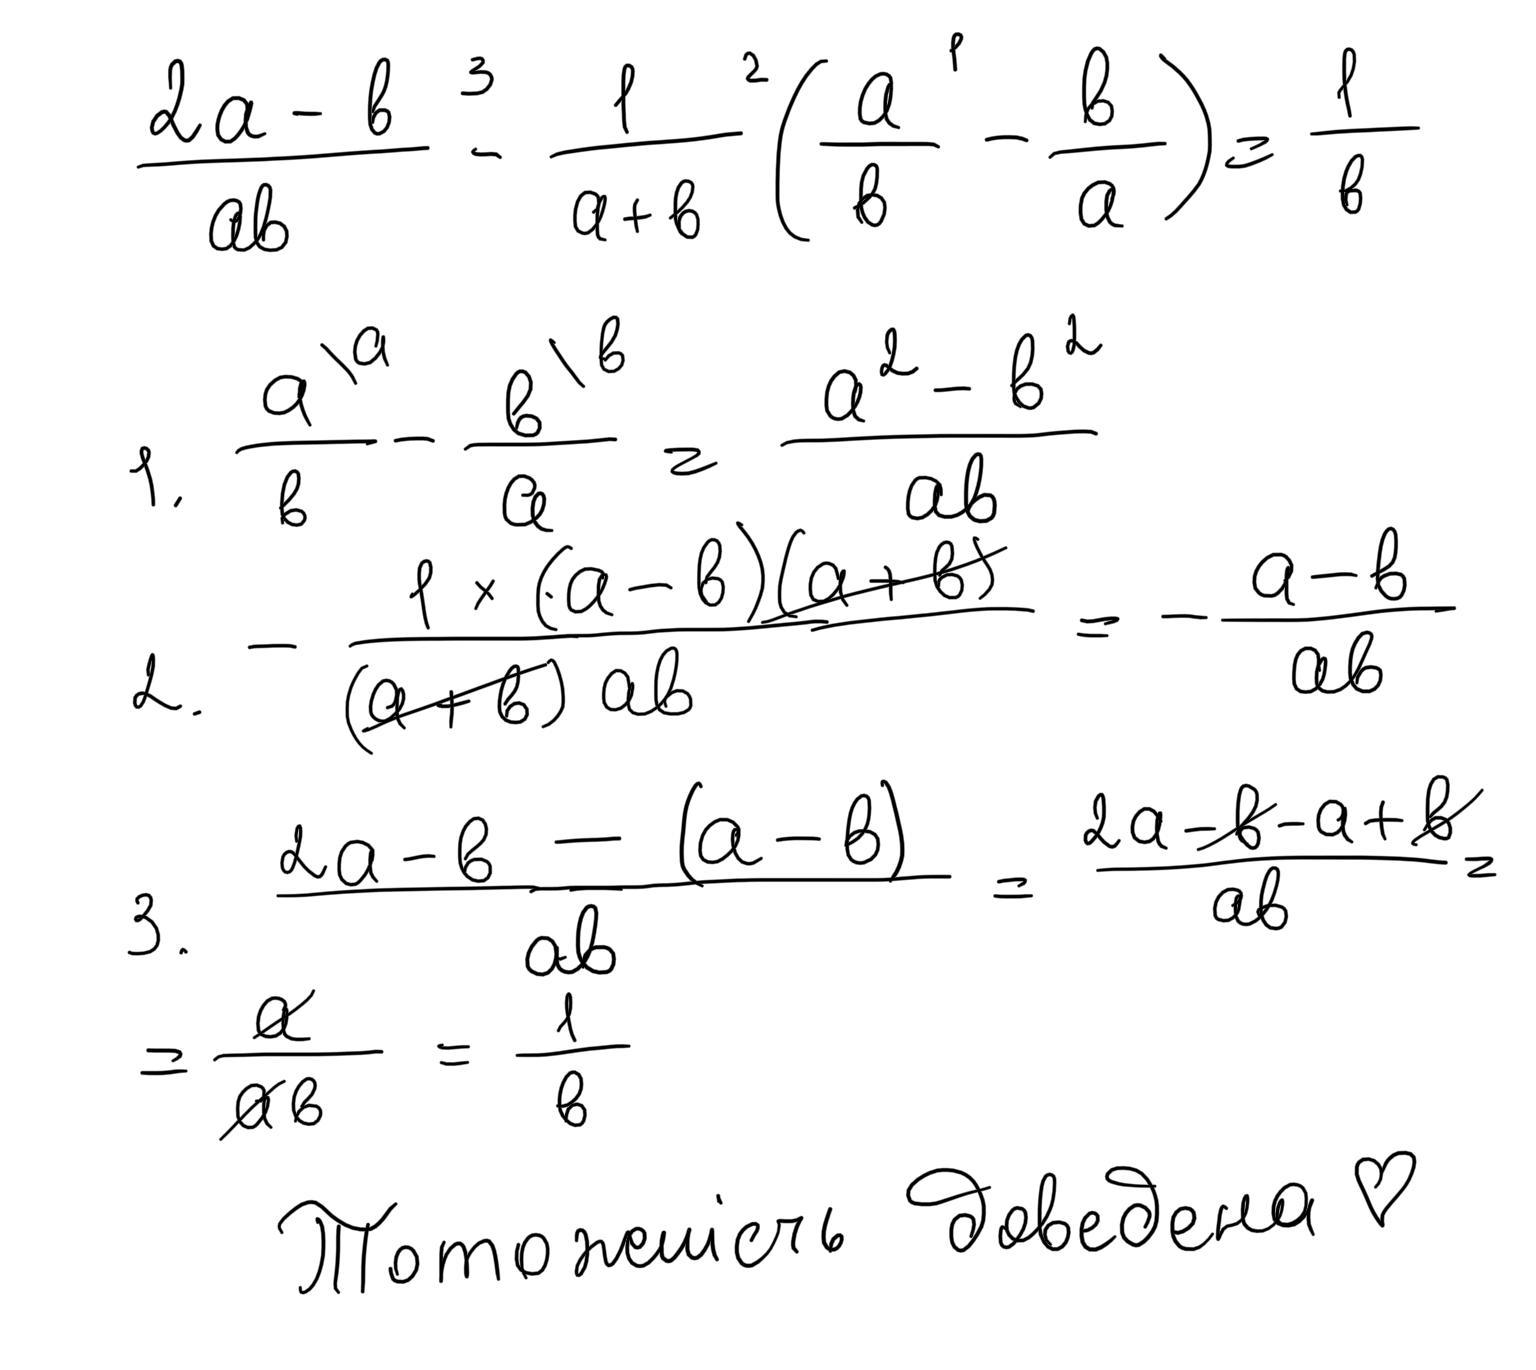 (2a - b)/ab -³ 1/(a + b) ²(a/b -¹ b/a) = 1/b
1. a\a/b - b\b/a = (a² - b²)/ab
2. - 1 × (a - b)(a + b)/(a + b) ab = - (a - b)/ab
3. (2a - b - (a - b))/ab = (2a - b - a + b)/ab =
= a/ab = 1/b
Тотожність доведена ♡